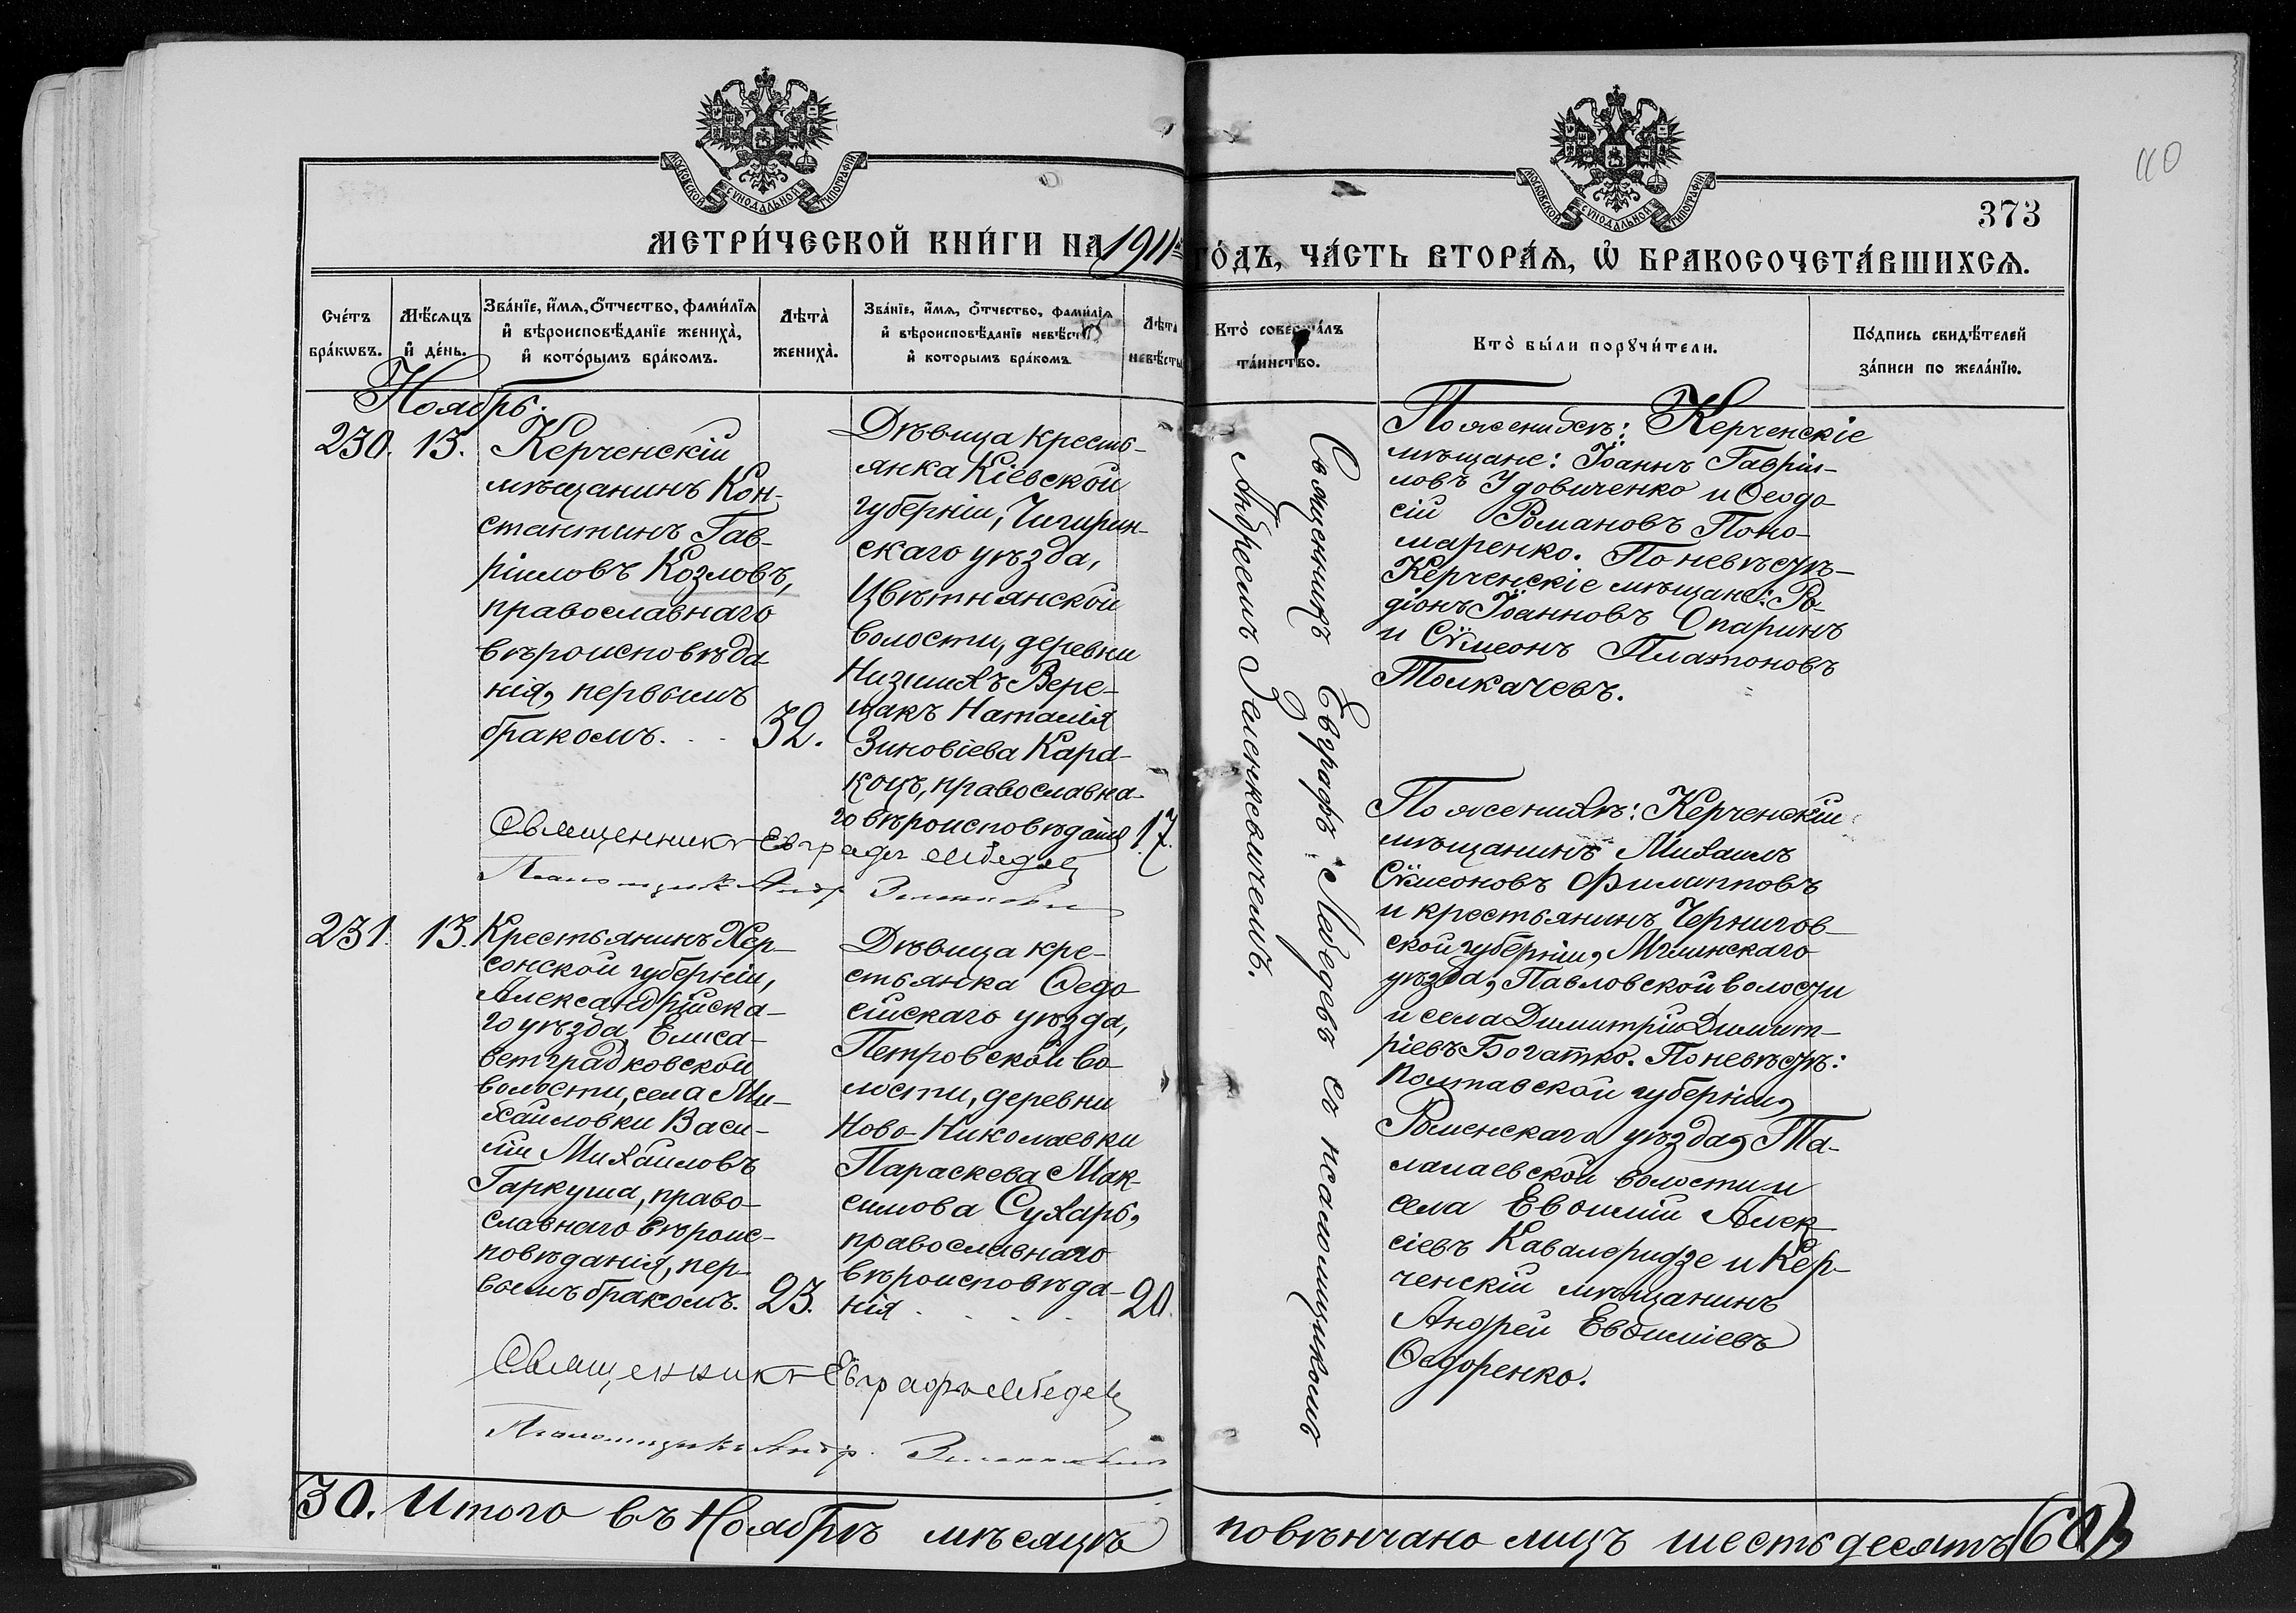 110
373
МОСКОВСКОЙ СУНОДАЛЬНОЙ ТИПОГРАФІИ
МОСКОВСКОЙ СУНОДАЛЬНОЙ ТИПОГРАФІИ
МЕТРИ́ЧЕСКОЙ КНИ́ГИ НА 1911й ГО́ДЪ, ЧА́СТЬ ВТОРА́Ѧ, Ѡ҆ БРАКОСОЧЕТА́ВШИХСѦ.
Сче́тъ
бра́кѡвъ.
Мѣ́сяцъ
и҆ де́нь.
Зва́нїе, и҆́мѧ, ѻ҆́тчество, фами́лїѧ
и҆ вѣроисповѣ́данїе жениха̀,
и҆ кото́рымъ бра́комъ.
Лѣта̀
жениха̀.
Зва́нїе, и҆́мѧ, ѻ҆́тчество, фами́лїѧ
и҆ вѣроисповѣ́данїе невѣ́сты
и҆ которымъ бракомъ
Лѣта
невѣ́сты
Кто̀ соверша́лъ
та́инство.
Кто̀ бы́ли порꙋчи́тели.
По́дпись свидѣ́телей
за́писи по жела́нїю.
Ноябрь.
230. 13.
Керченскій
мѣщанинъ Кон-
стантинъ Гав-
ріиловъ Козловъ,
православнаго
вѣроисповѣда
нія, первымъ
бракомъ. . . 32.
Дѣвица кресть-
янка Кіевской
губерніи, Чигирин-
скаго уѣзда,
Цвѣтнянской
волости, деревни
Низшихъ Вере-
щакъ Наталія
Зиновіева Кара-
коцъ, православна-
го вѣроисповѣданія 17.
Священникъ Евграфъ Лебедевъ
Псаломщикъ Андр. Зеленкевич
Священникъ Евграфъ Лебедевъ со псаломщикомъ
Андреемъ Зеленкевичемъ.
По женихѣ: Керченскіе
мѣщане: Іоаннъ Гавріи-
ловъ Удовиченко и Ѳеодо
сій Романовъ Поно-
маренко. По невѣстѣ-
Керченскіе мѣщане: Ро-
діонъ Іоанновъ Опаринъ
и Сѵмеонъ Платоновъ
Толкачевъ.
231. 13.
Крестьянинъ Хер-
сонской губерніи,
Александрійска-
го уѣзда, Елиса-
ветградковской
волости, села Ми-
хайловки Васи-
лій Михаиловъ
Гаркуша, право-
славнаго вѣроис-
повѣданія, пер-
вымъ бракомъ. 23.
Дѣвица кре-
стьянка Ѳеодо
сійскаго уѣзда,
Петровской во-
лости, деревни
Ново-Николаевки
Параскева Мак-
симова Сухарь,
православнаго
вѣроисповѣда-
нія . . . . 20.
Священникъ Евграфъ Лебедевъ
Псаломщикъ Андр. Зеленкевич
По женихѣ: Керченскій
мѣщанинъ Михаилъ
Сѵмеоновъ Филипповъ
и крестьянинъ Чернигов-
ской губерніи, Мглинскаго
уѣзда, Павловской волости
и села Димитрій Димит-
ріевъ Богатко. По невѣстѣ:
Полтавской губерніи,
Роменскаго уѣзда, Та-
лалаевской волости и
села Евѳимій Алек
сіевъ Кавалеридзе и Кер-
ченскій мѣщанинъ
Андрей Евѳиміевъ
Ѳедоренко.
30. Итого въ Ноябрѣ мѣсяцѣ повѣнчано лицъ шестьдесятъ (60)